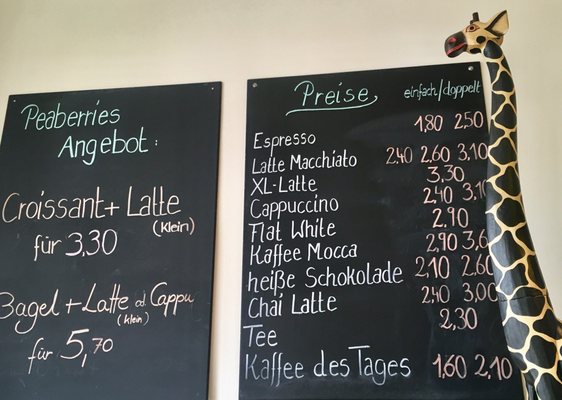 Peaberries
Angebot:
Croissant + Latte
(klein)
für 3,30
Bagel + Latte od. Cappu
(klein)
für 5,70
Preise einfach/doppelt
Espresso 1,80 2,50
Latte Macchiato 2,40 2,60 3,10
XL-Latte 3,30
Cappuccino 2,40 3,10
Flat White 2,90
Kaffee Mocca 2,90 3,6
heiße Schokolade 2,10 2,60
Chai Latte 2,40 3,00
Tee 2,30
Kaffee des Tages 1,60 2,10